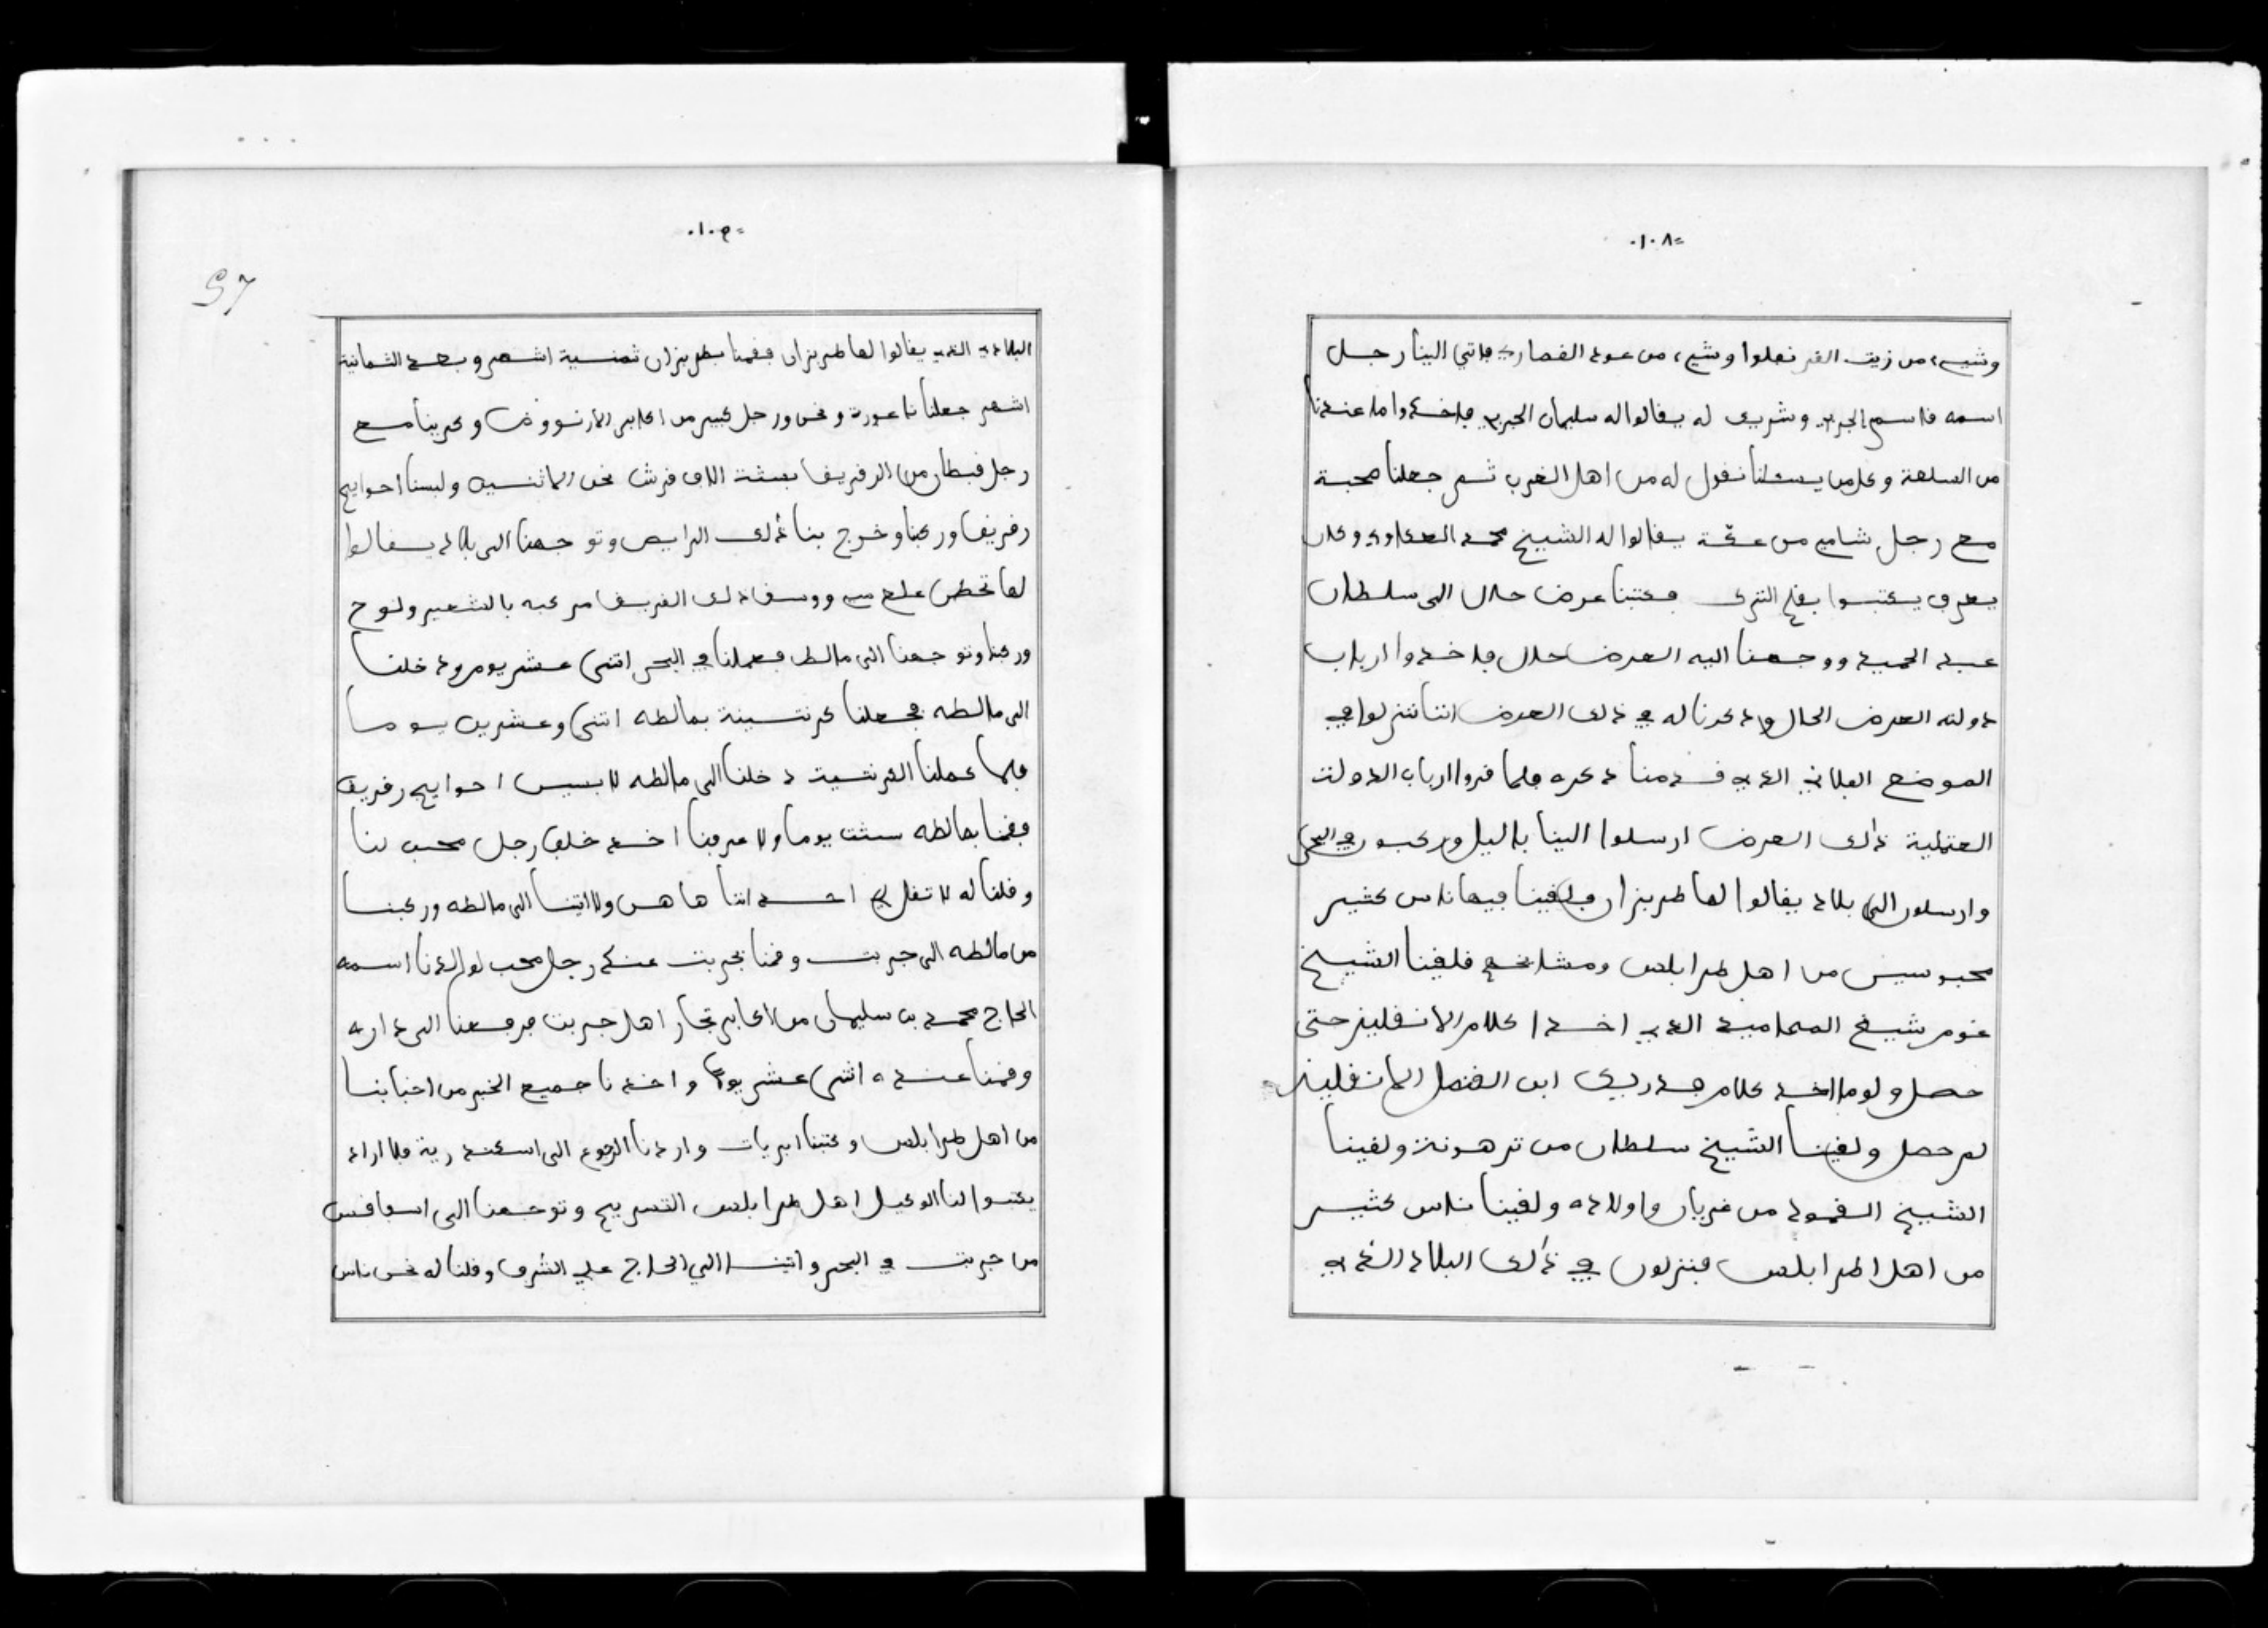 ١٠٨
وشيء من زيت القرنفلوا وشيء من عود القماري فاتي الينا رجل
اسمه قاسم وشريك له يقالوا له سليمان فاخدوا ما عندنا
من السلعة وكلمن يسئلنا نقول له من اهل الغرب ثم جعلنا صحبة
مع رجل شامي من عكة يقالوا له الشيخ محمد العكاوي وكان
يعرف يكتبوا بقلم التركي فكتبنا عرض حال الى سلطان
عبد الحميد ووجهنا اليه العرض حال فاخدوا ارباب
دولته العرض الحال ودكرنا له في ذلك العرض اننا نزلوا في
الموضع الفلاني الذي قدمنا دكره فلما قروا ارباب الدولت
العتملية ذلك العرض ارسلوا الينا باليل وركبون في البحر
وارسلون الى بلاد يقالوا لها طربزان ولقينا فيها ناس كثير
محبوسين من اهل طرابلس ومشائخهم فلقينا الشيخ
غومر شيخ المحاميد الذي اخدا كلام الانقليز حتى
حصل ولو ما اخد كلام ابن القنصل الانقليز
لم حصل ولقينا الشيخ سلطان من ترهونة ولقينا
الشيخ القمود من غريان واولاده ولقينا ناس كثير
من اهل اطرابلس فنزلون في ذلك البلاد الذي
١٠٩
97
البلاد الذي يقالوا لها طربزان فقمنا بطربزان ثمنسية اشهر وبعد الثمانية
اشهر جعلنا ناعورة ونحن ورجل كبير من اكابر الارنووض وكرينا مع
رجل قبطان من الرفريف بستة الاف قرش نحن الاثنين ولبسنا احوايج
رفريف وركبنا وخرج بنا ذلك الرايس وتوجهنا الى بلاد يقالوا
لها ووسق ذلك القريق مركبه بالشعير ولوح
وركبنا وتوجهنا الى مالطه فعملنا في البحر اثنى عشر يوم ودخلنا
الى مالطه فجعلنا كرنتسينة بمالطه اثنى وعشرين يوما
فلما عملنا القرنتسية دخلنا الى مالطه لابسين احوايج رفريف
فقمنا بمالطه ستت يوما ولا عرفنا احد خلاف رجل محب لنا
وقلنا له لا تقل لي احد اننا هاهن ولا اتينا الى مالطه وركبنا
من مالطه الى جربت وقمنا بجربت عند رجل محب لوالدنا اسمه
الحاج محمد بن سليمان من اكابر تجار اهل جربت فرفعنا الى داره
وقمنا عنده اثنى عشر يوما واخدنا جميع الخبر من احبابنا
من اهل طرابلس وكتبنا ابريات واردنا الرجوع الى اسكندرية فلا اراد
يكتبوا لنا الوكيل اهل طرابلس التسريح وتوجهنا الى اسفاقس
من جربت في البحر واتينا الى الحاج علي الشرف وقلنا له نحن ناس